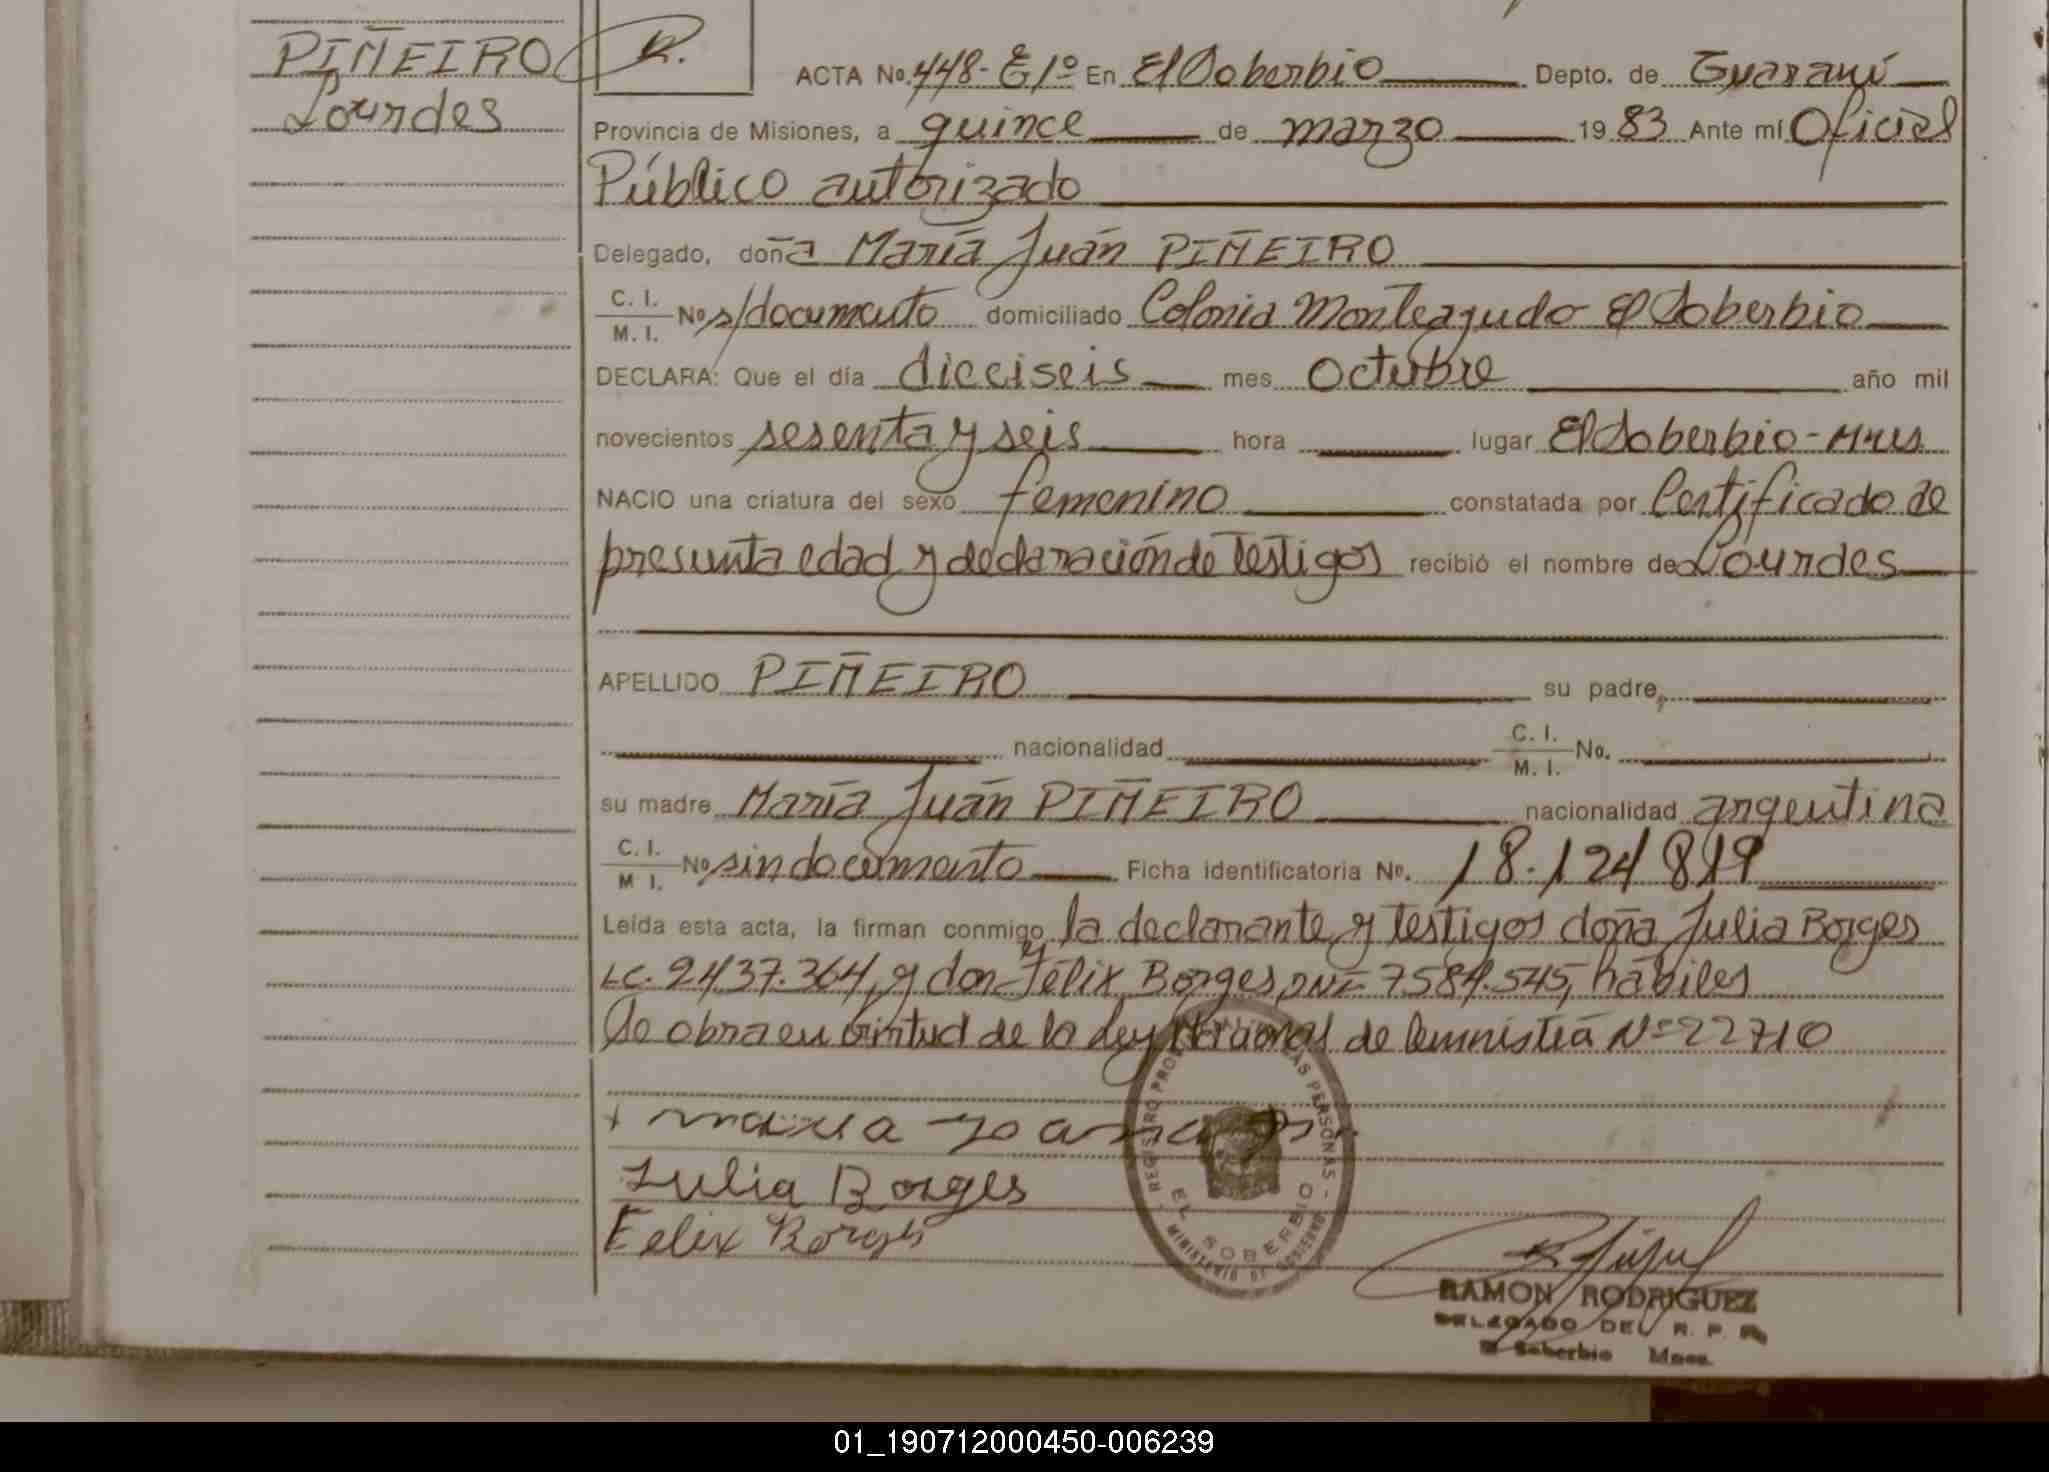 PIÑEIRO
Lourdes
R.
ACTA No. 448- E/1º En El Soberbio Depto. de Guaraní
Provincia de Misiones, a quince de marzo 19 83 Ante mí Oficial
Público autorizado
Delegado, doña María Juán PIÑEIRO
C. I.
M. I. No s/documento domiciliado Colonia Monteagudo El Soberbio
DECLARA: Que el día dieciseis mes octubre año mil
novecientos sesenta y seis hora lugar El Soberbio-Mnes
NACIO una criatura del sexo femenino constatada por Certificado de
presunta edad y declaración de testigos recibió el nombre de Lourdes
APELLIDO PIÑEIRO su padre,
nacionalidad C. I.
M. I. No.
su madre María Juán PIÑEIRO nacionalidad argentina
C. I.
M I. No sin documento Ficha identificatoria No. 18.124 819
Leída esta acta, la firman conmigo, la declarante y testigos doña Julia Borges
LC. 2437.364, y don Félix Borges DNI- 7584.545, hábiles
Se obra en virtud de la Ley Nacional de Nº 22710
+ maria
Julia Borges
Felix Borges
REGISTRO PERSONAS -
EL SOBERBIO
MINISTERIO DE GOBIERNO
RAMON RODRIGUEZ
DELEGADO DEL R. P. P.
El Soberbio Mnes.
01_190712000450-006239